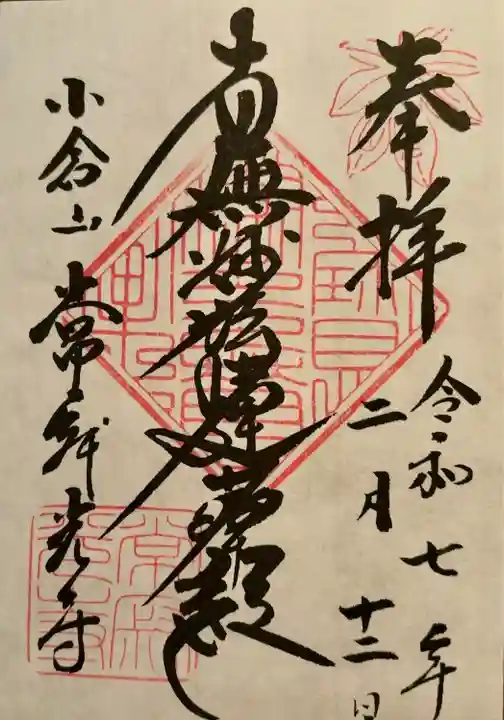 奉拝
令和七年
二月十二日
南無妙法蓮華経
小倉山常寂光寺